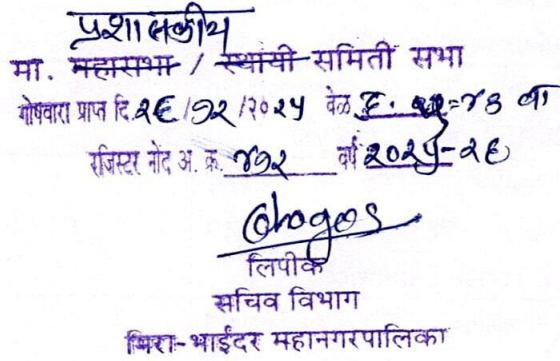 प्रशासकीय
मा. महासभा / स्थायी समिती सभा
गोषवारा प्राप्त दि. २६/१२/२०२५ वेळ वा
रजिस्टर नोंद अ. क्र. ४१२ वर्ष २०२५-२६
लिपीक
सचिव विभाग
मिरा-भाईंदर महानगरपालिका